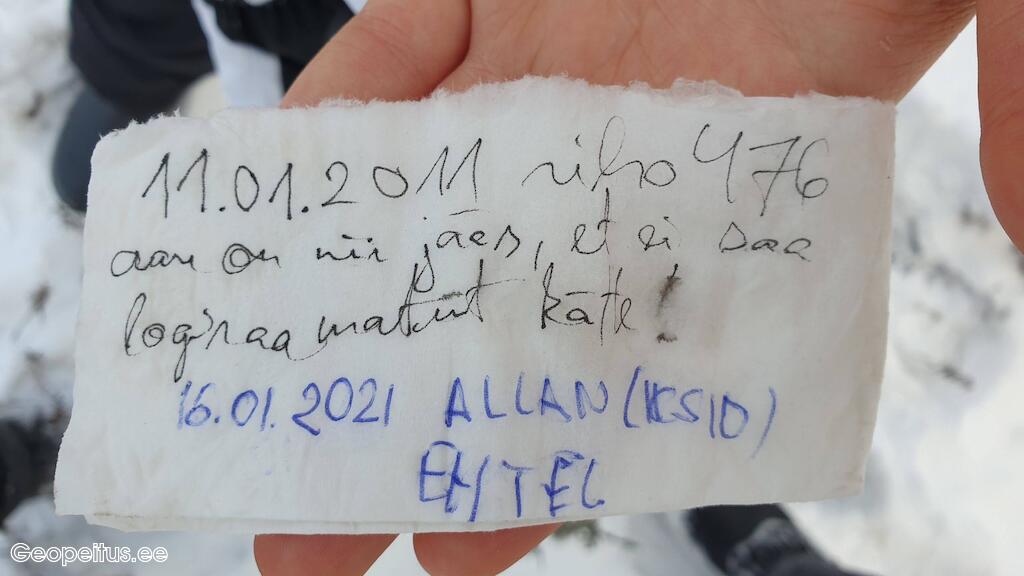 11.01.2011 riho476
aare on nii jäes, et ei saa
logiraamatut kätte!
16.01.2021 ALLAN
Geopeitus.ee